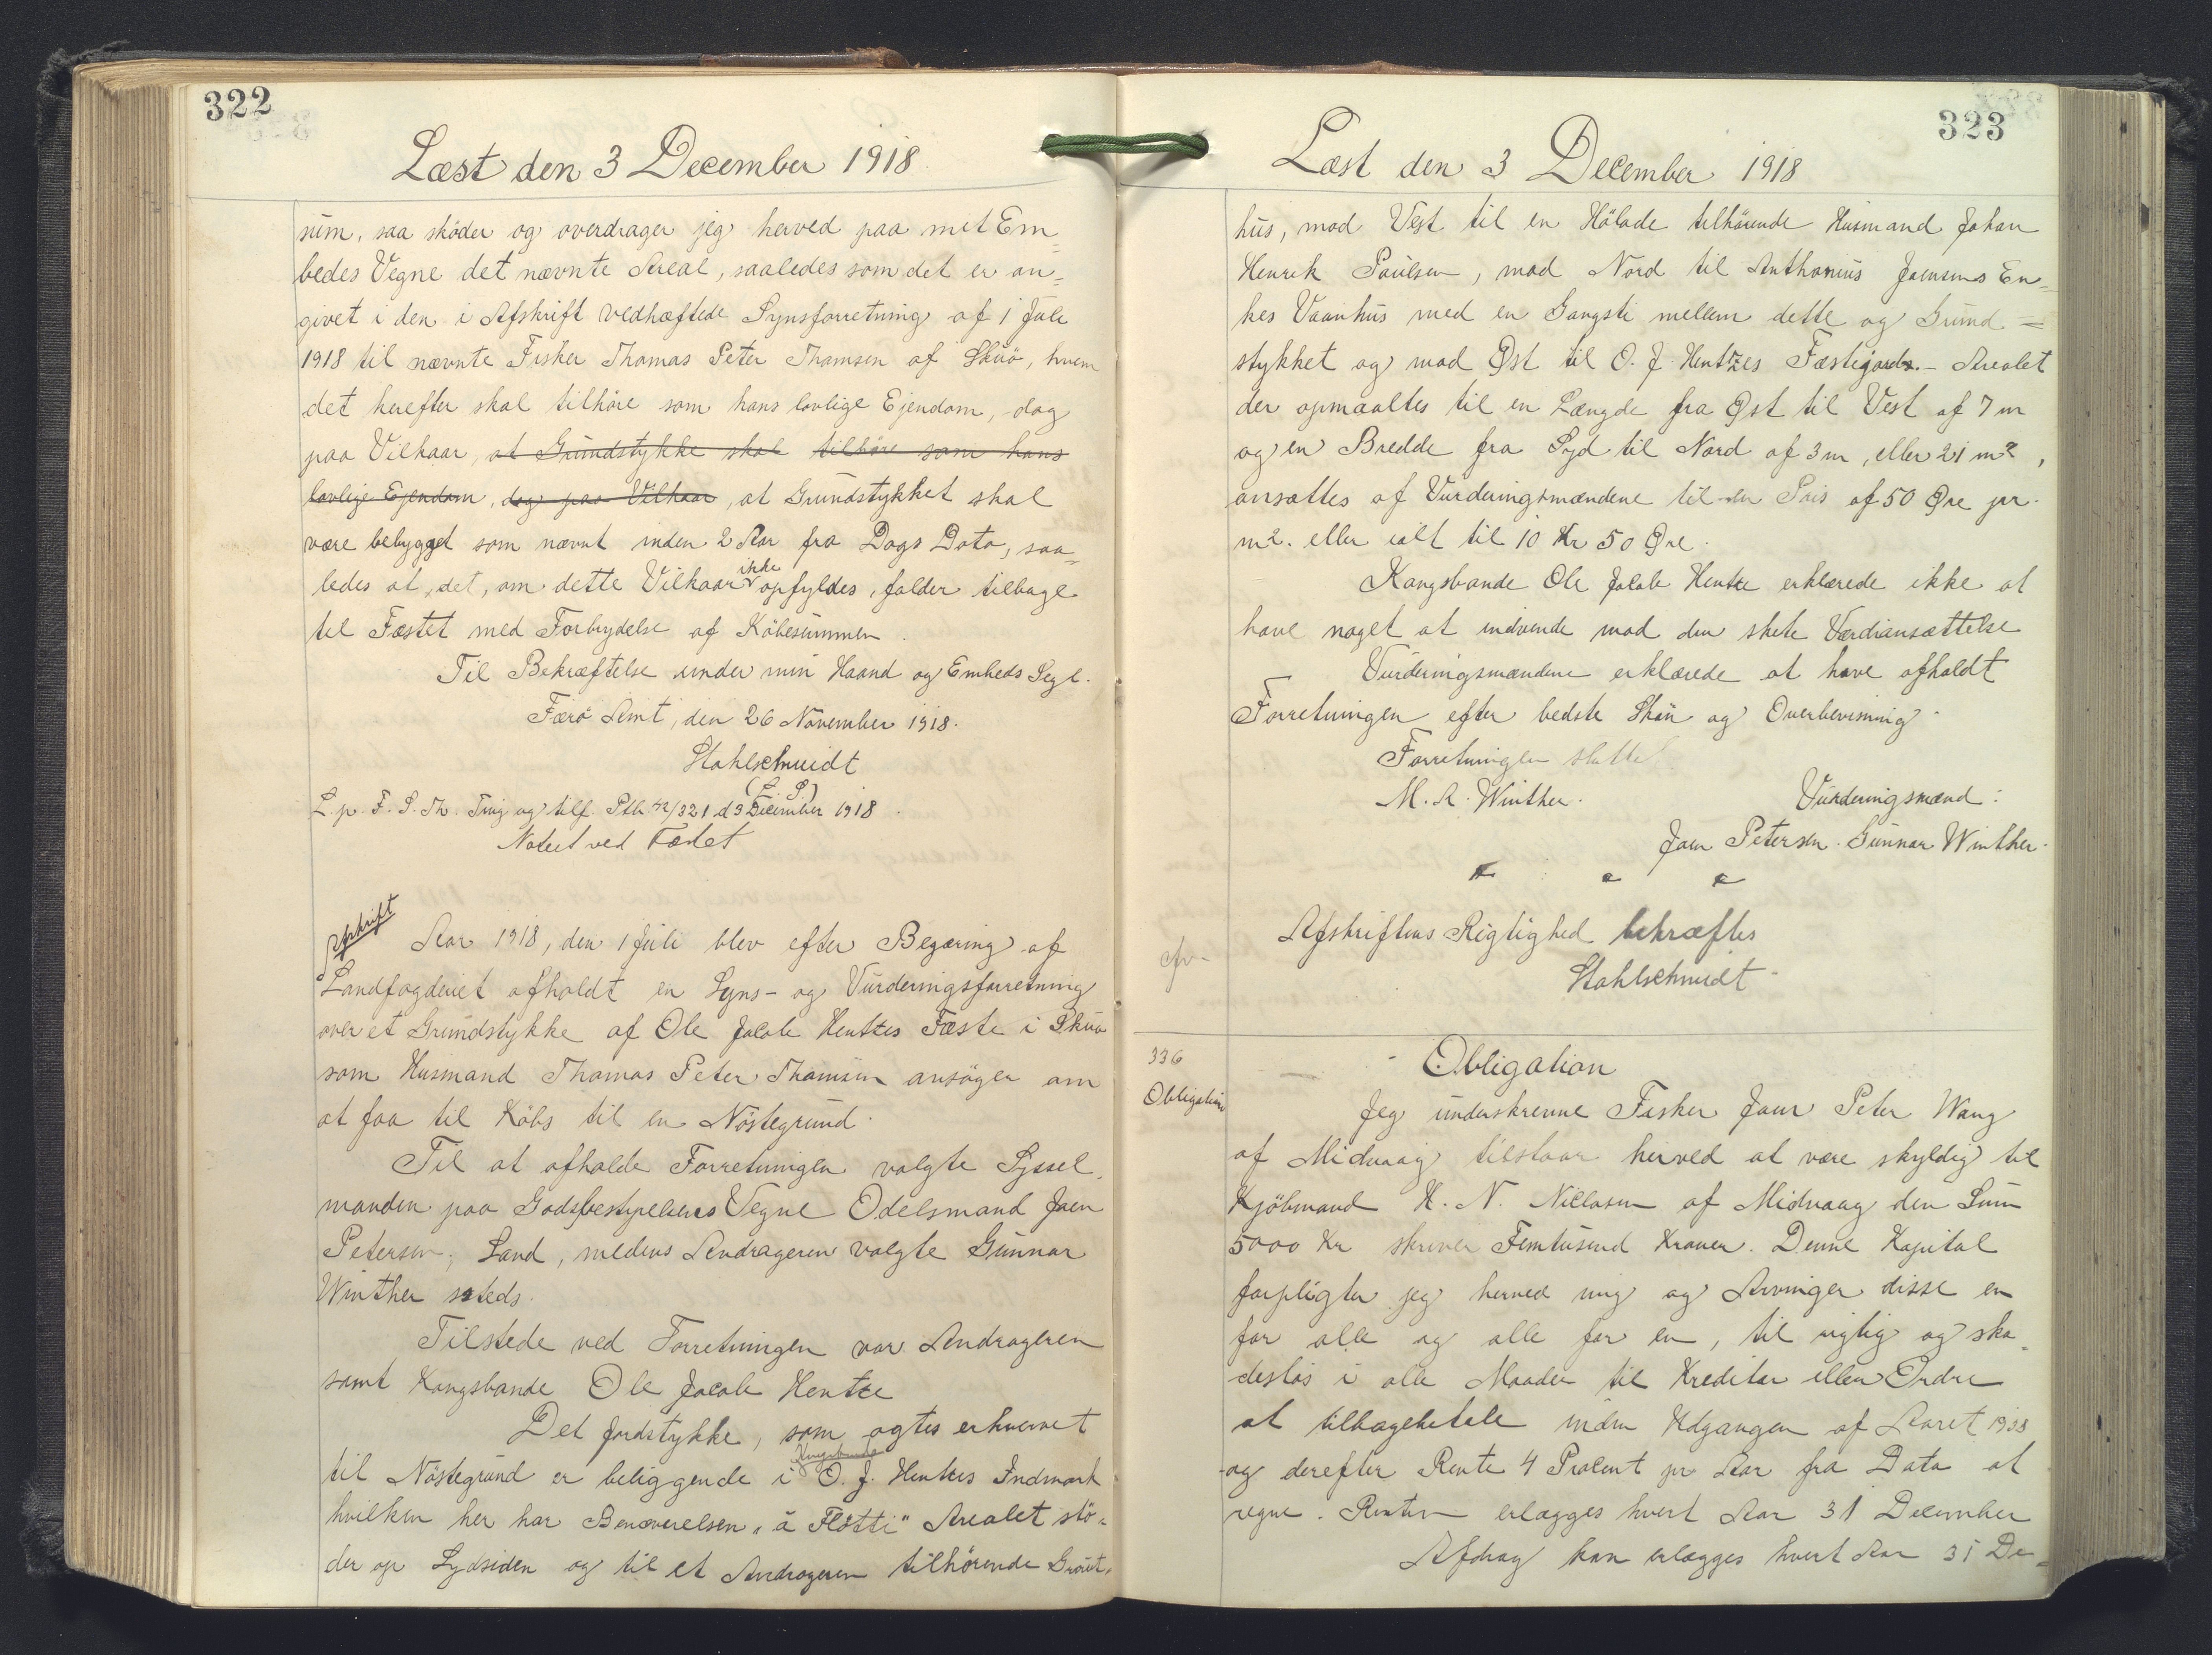 322
Læst den 3 December 1918
sum, saa skøder og overdrager jeg herved paa mit Em=
bedes Vegne det nævnte Areal, saaledes som det er an=
givet i den i Afskrift vedhæftede Synsforretning af 1 Juli
1918 til nævnte Fisker Thomas Peter Thomsen af Skuö, hvem
det herefter skal tilhöre som hans lovlige Ejendom, - dog
paa Vilkaar, at Grundstykke skal tilhöre som hans
lovlige Ejendom, dog paa Vilkaar, at Grundstykket skal
være bebygget som nævnt inden 2 Aar fra Dags Dato, saa=
ledes at, det, om dette Vilkaar ikke opfyldes, falder tilbage
til Fæstet med Forbrydelse af Köbesummen.
Til Bekræftelse under min Haand og Embeds Segl.
Færö Amt, den 26 November 1918.
Stahlschmidt
(L. S.)
L. p. F. S. Th. Ting og tilf. Ptk 42/321 d 3 December 1918.
Noteret ved Fæstet
Afskrift
Aar 1918, den 1 Juli blev efter Begæring af
Landfogderiet afholdt en Syns- og Vurderingsforretning
over et Grundstykke af Ole Jacob Hentzes Fæste i Skuö
som Husmand Thomas Peter Thomsen ansöger om
at faa til Köbs til en Nöstegrund.
Til at afholde Forretningen valgte Syssel
manden paa Godsbestyrelsens Vegne Odelsmand Joen
Petersen, Sand, medens Andrageren valgte Gunnar
Winther ssteds.
Tilstede ved Forretningen var Andrageren
samt Kongsbonde Ole Jacob Hentze
Det Jordstykke, som agtes erhvervet
til Nöstegrund er beliggende i Kongsbonde O. J. Hentzes Indmark
hvilken her har Benævnelsen „á Fløtti" Arealet stö=
der op Sydsiden og til et Andrageren tilhörende Grout,
323
Læst den 3 December 1918
hus, mod Vest til en Hölade tilhörende Husmand Johan
Henrik Poulsen, mod Nord til Anthonius Joensens En=
kes Vaanhus med en Gangsti mellem dette og Grund=
stykket og mod Øst til O. J. Hentzes Fæstegaard. - Arealet
der opmaaltes til en Længde fra Øst til Vest af 7 m
og en Bredde fra Syd til Nord af 3 m, eller 21 m²,
ansættes af Vurderingsmændene til en Pris af 50 Øre pr.
m². eller ialt til 10 Kr 50 Øre.
Kongsbonde Ole Jacob Hentze erklærede ikke at
have noget at indvende mod den skete Værdiansættelse
Vurderingsmændene erklærede at have afholdt
Forretningen efter bedste Skön og Overbevisning.
Forretningen sluttet
M. A. Winther. Vurderingsmænd:
Joen Petersen. Gunnar Winther.
Afskriftens Rigtighed bekræftes
Stahlschmidt.
336
Obligation
Obligation
Jeg underskrevne Fisker Joen Peter Wang
af Midvaag tilstaar herved at være skyldig til
Kjöbmand H. N. Niclasen af Midvaag den Sum
5000 Kr skriver Femtusend Kroner. Denne Kapital
forpligter jeg herved mig og Arvinger disse en
for alle og alle for en, til rigtig og ska
deslös i alle Maader til Kreditor eller Ordre
at tilbagebetale inden Udgangen af Aaret 1938
og derefter Rente 4 Procent pr Aar fra Dato at
regne. Renten erlægges hvert Aar 31 December
Afdrag kan erlægges hvert Aar 31 De=